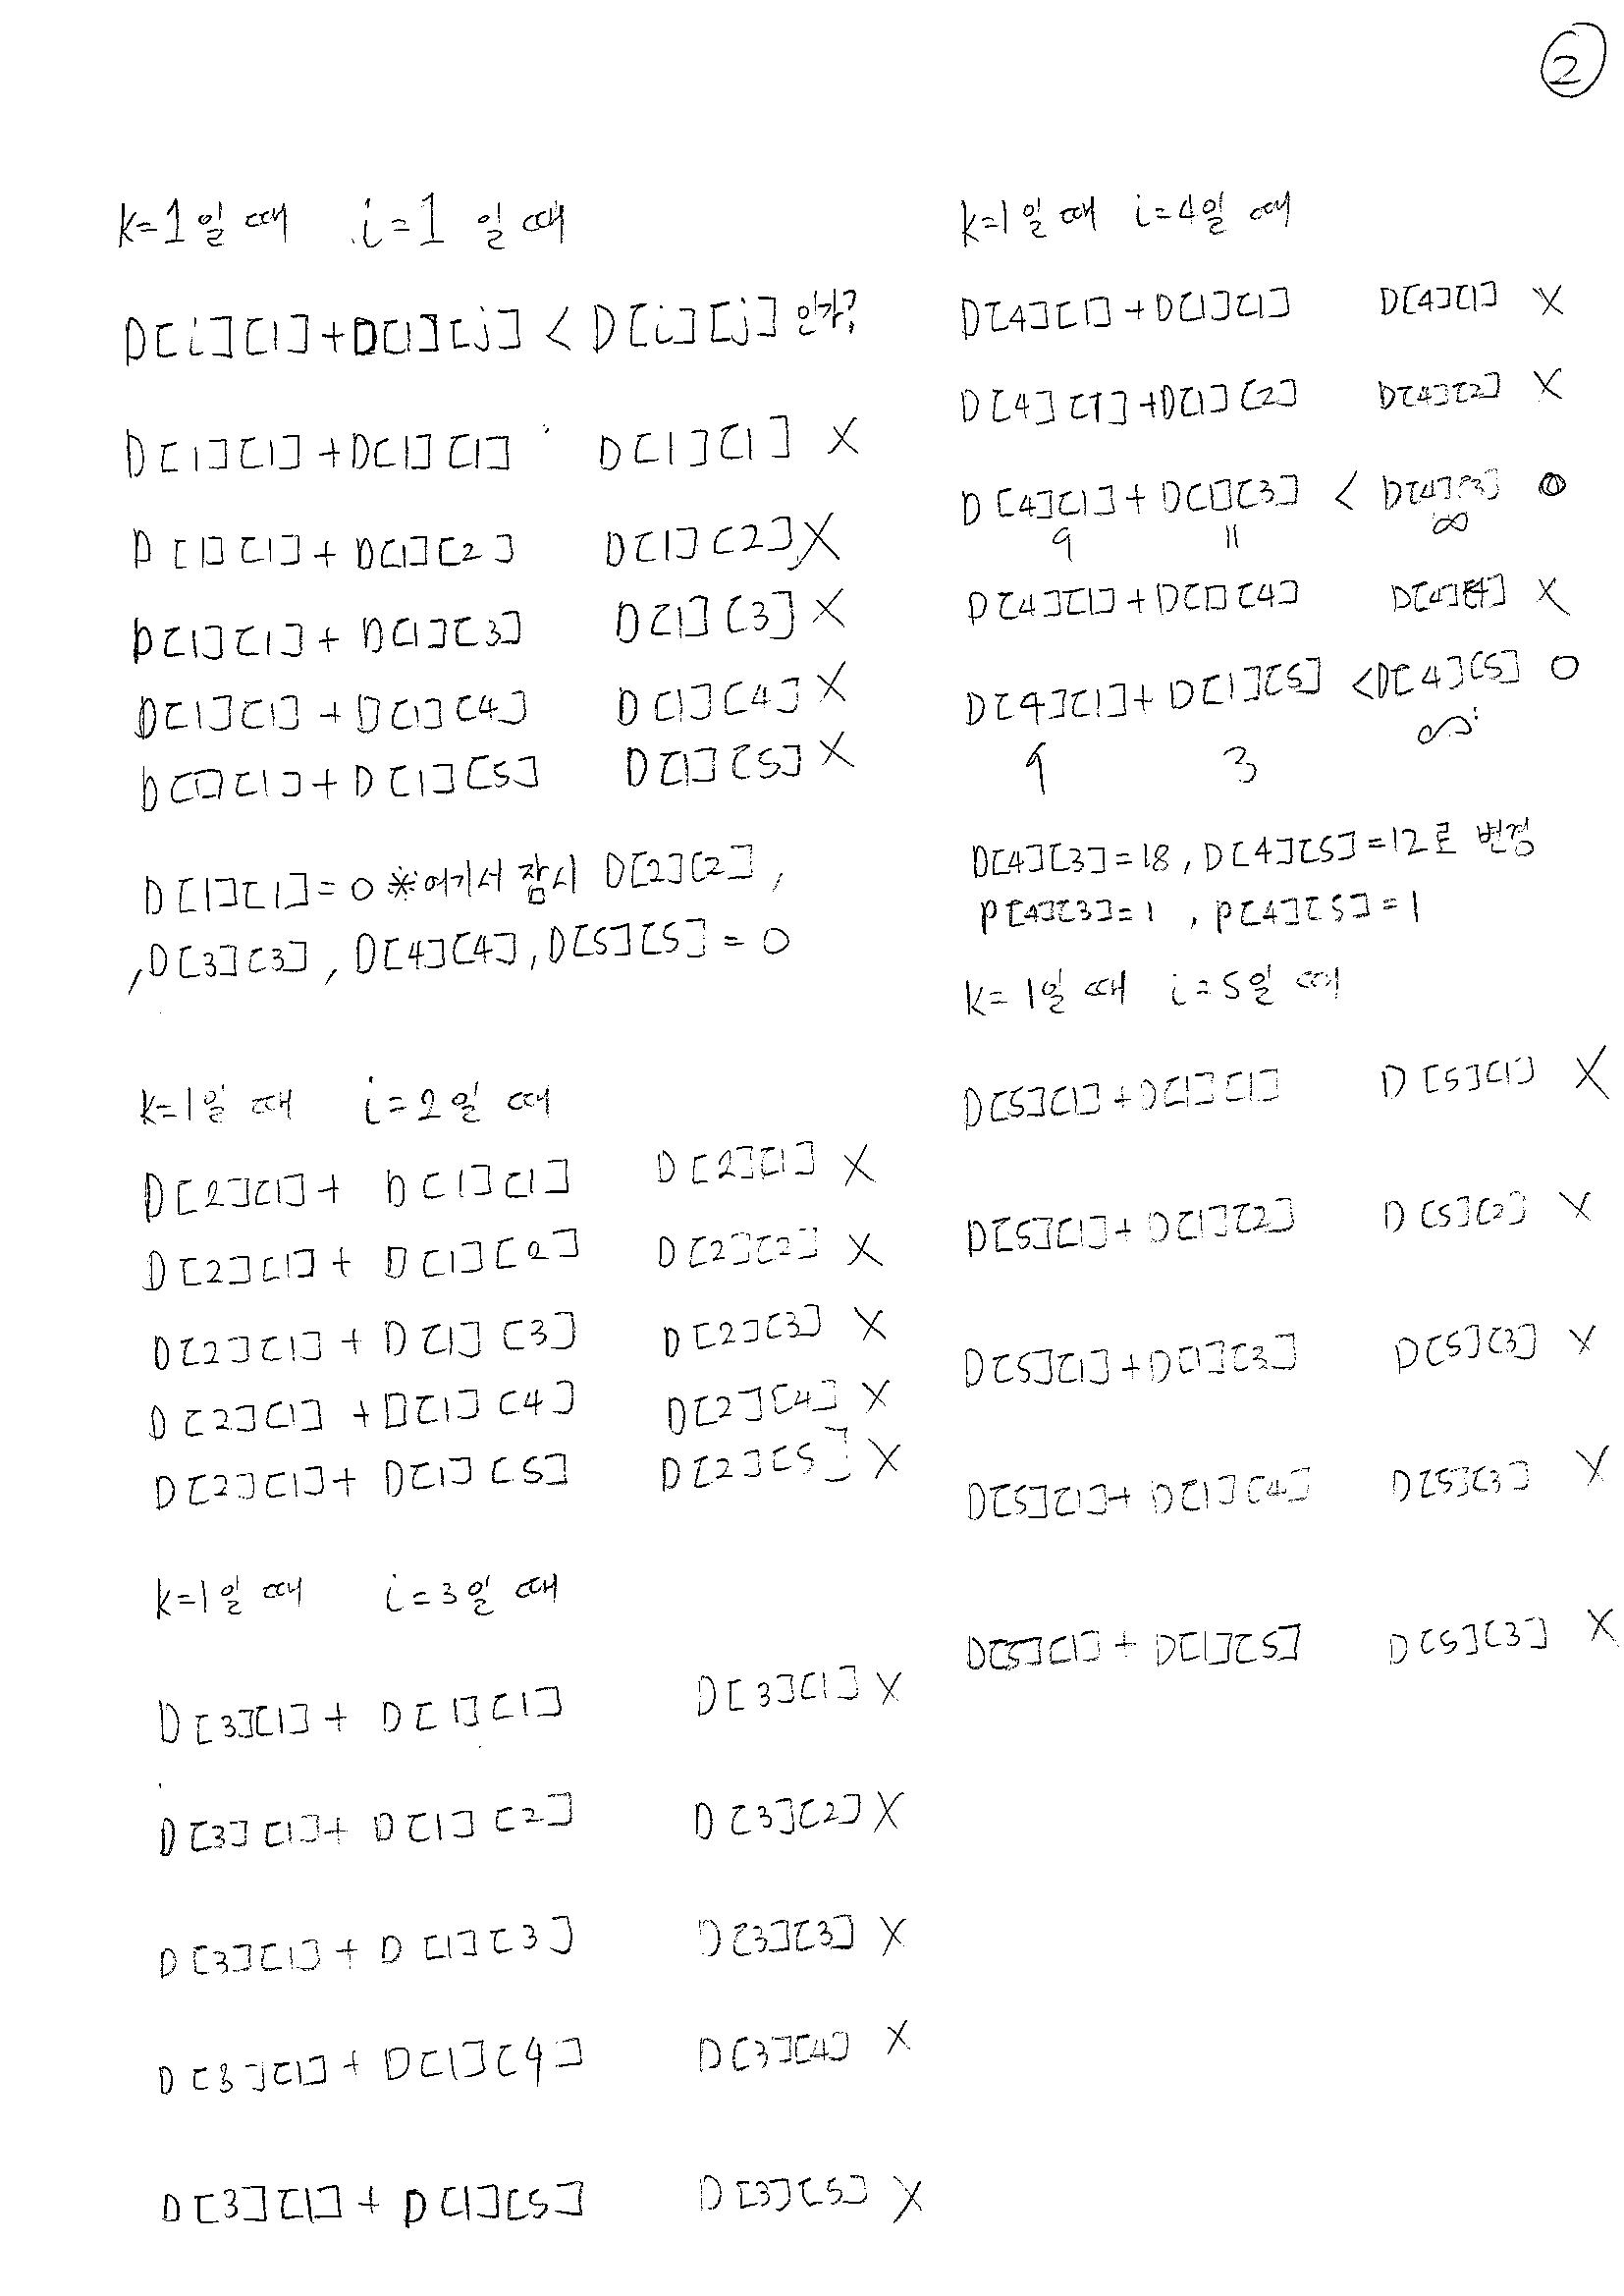 ②
k=1일 때 i=1 일 때
D[i][1]+D[1][j] < D[i][j] 인가?
D[1][1]+D[1][1] D[1][1] X
D[1][1]+D[1][2] D[1][2] X
D[1][1]+D[1][3] D[1][3] X
D[1][1]+D[1][4] D[1][4] X
D[1][1]+D[1][5] D[1][5] X
D[1][1]=0 ※여기서 잠시 D[2][2],
,D[3][3], D[4][4], D[5][5]=0
k=1일 때 i=2일 때
D[2][1]+ D[1][1] D[2][1] X
D[2][1]+ D[1][2] D[2][2] X
D[2][1]+ D[1][3] D[2][3] X
D[2][1] +D[1][4] D[2][4] X
D[2][1]+ D[1][5] D[2][5] X
k=1일 때 i=3일 때
D[3][1]+ D[1][1] D[3][1] X
D[3][1]+ D[1][2] D[3][2] X
D[3][1]+ D[1][3] D[3][3] X
D[3][1]+ D[1][4] D[3][4] X
D[3][1]+ D[1][5] D[3][5] X
k=1일 때 i=4일 때
D[4][1]+D[1][1] D[4][1] X
D[4][1]+D[1][2] D[4][2] X
D[4][1]+ D[1][3] < D[4][3] O
9 11 ∞
D[4][1]+D[1][4] D[4][4] X
D[4][1]+ D[1][5] <D[4][5] O
9 3 ∞
D[4][3]=18, D[4][5]=12로 변경
P[4][3]=1 , P[4][5]=1
k=1일 때 i=5일 때
D[5][1]+D[1][1] D[5][1] X
D[5][1]+D[1][2] D[5][2] X
D[5][1]+D[1][3] D[5][3] X
D[5][1]+ D[1][4] D[5][3] X
D[5][1]+ D[1][5] D[5][3] X